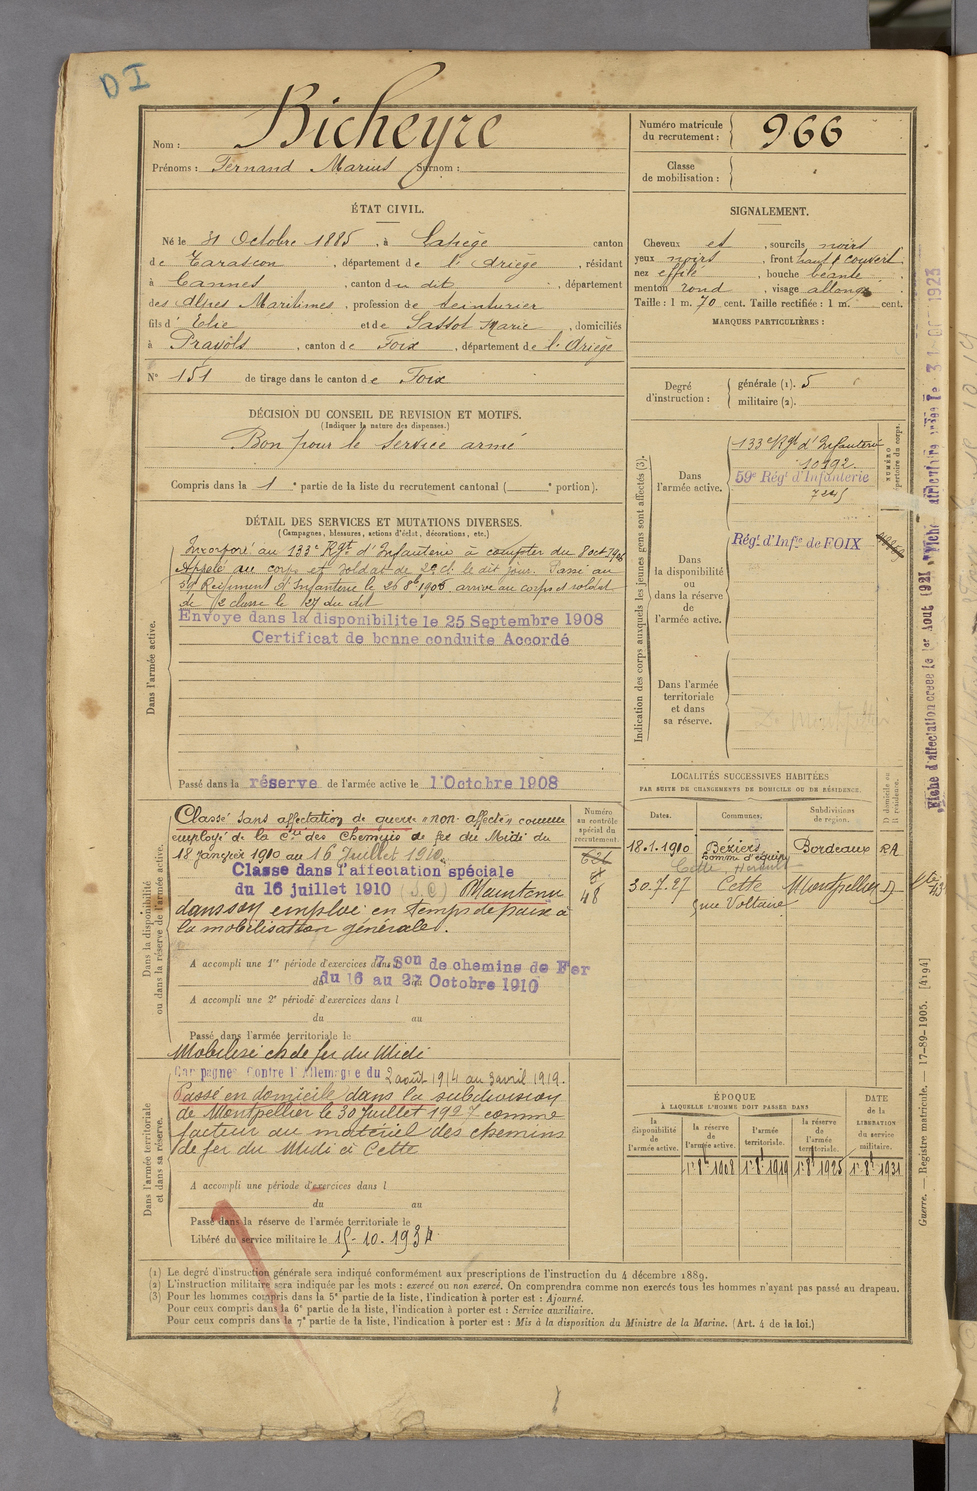 DI
Nom : Bicheyre
Prénoms : Fernand Marius Surnom :
Numéro matricule du recrutement : 966
Classe de mobilisation :
ÉTAT CIVIL.
Né le 31 Octobre 1885, à Lapège canton
de Tarascon, département de l'Ariège, résidant
à Cannes, canton du dit, département
des Alpes Maritimes, profession de teinturier
fils d'Elie et de Sassot Marie, domiciliés
à Pravols, canton de Foix, département de l'Ariège
N° 151 de tirage dans le canton de Foix
SIGNALEMENT.
Cheveux et, sourcils noirs
yeux noirs, front haut couvert
nez effilé, bouche béante
menton rond, visage allongé
Taille : 1 m. 70 cent. Taille rectifiée : 1 m. cent.
MARQUES PARTICULIÈRES :
DÉCISION DU CONSEIL DE REVISION ET MOTIFS.
(Indiquer la nature des dispenses.)
Bon pour le service armé
Compris dans la 1e partie de la liste du recrutement cantonal ( e portion).
Degré d'instruction : générale (1). 5
militaire (2).
DÉTAIL DES SERVICES ET MUTATIONS DIVERSES.
(Campagnes, blessures, actions d'éclat, décorations, etc.)
Dans l'armée active.
Incorporé au 133e Rgt d'Infanterie à compter du 8 oct 1906
Appelé au corps et soldat de 2e cl. le dit jour. Passé au
59 Régiment d'Infanterie le 26 8bre 1906, arrivé au corps et soldat
de 2e classe le 27 du dit
Envoye dans la disponibilite le 25 Septembre 1908
Certificat de bonne conduite Accordé
Passé dans la réserve de l'armée active le 1 Octobre 1908
Indication des corps auxquels les jeunes gens sont affectés (3).
NUMÉRO
répertoire du corps.
Dans l'armée active.
133e Rgt d'Infanterie
10992.
59e Régt d'Infanterie
7245
Dans la disponibilité ou dans la réserve de l'armée active.
Régt d'Infie de FOIX
Dans l'armée territoriale et dans sa réserve.
De Montpellier
Dans la disponibilité ou dans la réserve de l'armée active.
Numéro au contrôle spécial du recrutement.
48
Classé sans affectation de guerre « non affecté » comme
employé de la Cie des Chemins de fer du Midi du
18 janvier 1910 au 16 Juillet 1910.
Classe dans l'affectation spéciale
du 16 juillet 1910 Maintenu
dans son emploi en temps de paix à
la mobilisation générale.
A accompli une 1re période d'exercices dans 7 Son de chemins de Fer
du 16 au 27 Octobre 1910
A accompli une 2e période d'exercices dans l
du au
Passé dans l'armée territoriale le
Mobilisé ch de fer du Midi
Dans l'armée territoriale et dans sa réserve.
Campagne Contre l'Allemagne du 2 août 1914 au 3 avril 1919.
Passé en domicile dans la subdivision
de Montpellier le 30 Juillet 1927 comme
facteur au matériel des chemins
de fer du Midi à Cette
A accompli une période d'exercices dans l
du au
Passé dans la réserve de l'armée territoriale le
Libéré du service militaire le 15-10-1934
LOCALITÉS SUCCESSIVES HABITÉES
PAR SUITE DE CHANGEMENTS DE DOMICILE OU DE RÉSIDENCE.
Dates. Communes. Subdivisions de region. D domicile ou R résidence.
18.1.1910 Béziers Bordeaux RA
homme d'équipe
Cette Hérault
30.7.27 Cette Montpellier D
rue Voltaire
ÉPOQUE
À LAQUELLE L'HOMME DOIT PASSER DANS
DATE de la LIBERATION du service militaire.
la disponibilité de l'armée active. la réserve de l'armée active. l'armée territoriale. la réserve de l'armée territoriale.
1er 8bre 1908 1er 8bre 1919 1er 8bre 1925 1er 8bre 1931
Fiche d'affectation créée le 1er Aout 1921
Guerre. — Registre matricule. — 17-89-1905. [4194]
(1) Le degré d'instruction générale sera indiqué conformément aux prescriptions de l'instruction du 4 décembre 1889.
(2) L'instruction militaire sera indiquée par les mots : exercé ou non exercé. On comprendra comme non exercés tous les hommes n'ayant pas passé au drapeau.
(3) Pour les hommes compris dans la 5e partie de la liste, l'indication à porter est : Ajourné.
Pour ceux compris dans la 6e partie de la liste, l'indication à porter est : Service auxiliaire.
Pour ceux compris dans la 7e partie de la liste, l'indication à porter est : Mis à la disposition du Ministre de la Marine. (Art. 4 de la loi.)